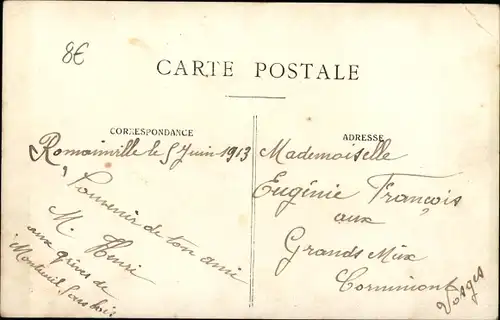 8€
CARTE POSTALE
CORRESPONDANCE
Romainville le 5 Juin 1913
Souvenir de ton ami
M. Henri
aux grives de
Montreuil Sous bois
ADRESSE
Mademoiselle
Eugénie François
aux
Grands Meix
Cornimont
Vosges